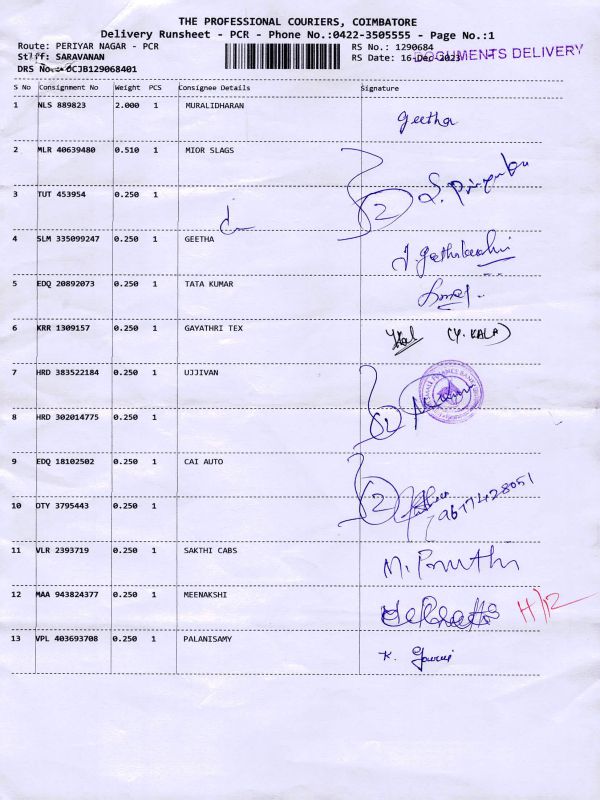 THE PROFESSIONAL COURIERS, COIMBATORE
Delivery Runsheet - PCR - Phone No.:0422-3505555 - Page No.:1
Route: PERIYAR NAGAR - PCR RS No.: 1290684
Staff: SARAVANAN RS Date: 16-Dec-2023 DOCUMENTS DELIVERY
DRS No.: dCJB129068401
S No Consignment No Weight PCS Consignee Details Signature
1 NLS 889823 2.000 1 MURALIDHARAN geetha
2 MLR 40639480 0.510 1 MIOR SLAGS
3 TUT 453954 0.250 1 2
4 SLM 335099247 0.250 1 GEETHA
5 EDQ 20892073 0.250 1 TATA KUMAR
6 KRR 1309157 0.250 1 GAYATHRI TEX (Y. KALA)
7 HRD 383522184 0.250 1 UJJIVAN
8 HRD 302014775 0.250 1 2
9 EDQ 18102502 0.250 1 CAI AUTO
10 DTY 3795443 0.250 1 2 9677428051
11 VLR 2393719 0.250 1 SAKTHI CABS
12 MAA 943824377 0.250 1 MEENAKSHI H/R
13 VPL 403693708 0.250 1 PALANISAMY K. Gowri